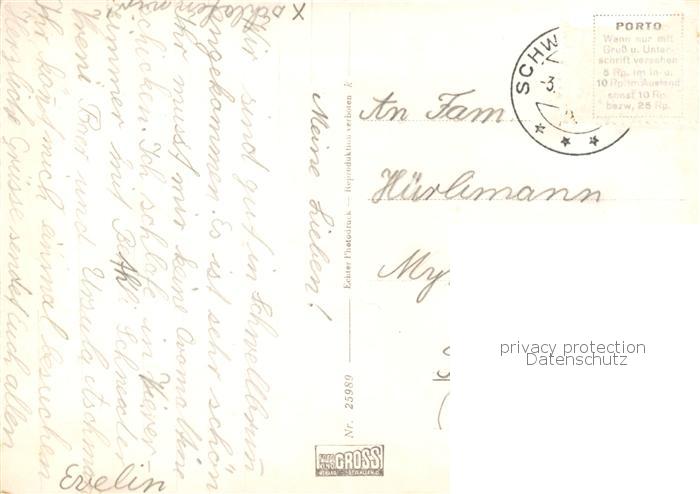 Meine Lieben!
Wir sind gut in Schwellbrun
angekommen. Es ist sehr schön
Ihr müsst mir keine Ovomaltine
schicken. Ich schlafe in Vierer
zimmer mit Bethli Schneider
Vreni und Ursula
Ihr könnt mich einmal besuchen
Herzliche Grüsse sendet Euch allen
Evelin
X
Nr. 25989
Echter Photodruck — Reproduktion verboten
GROSS
SCHW
3
PORTO
Wenn nur mit
Gruß u. Unter-
schrift versehen
5 Rp. im In- u.
10 Rp. im Ausland
sonst 10 Rp.
bezw. 25 Rp.
An Fam
Hürlimann
My
privacy protection
Datenschutz